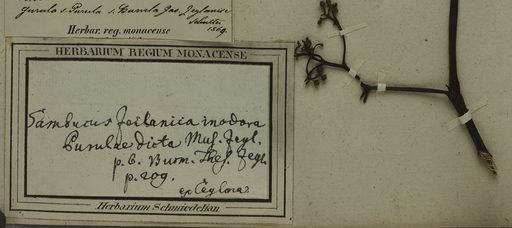 Gurula s. Purula s. Burula Gas. Zeylanice
Schultes
1849.
Herbar. reg. monacense
HERBARIUM REGIUM MONACENSE
Sambucus Zeilanica inodora
Purulae dicta Mus. Zeyl.
p. 6. Burm. Thes. Zeyl.
p. 209.
ex Ceylona.
Herbarium Schmiedelian